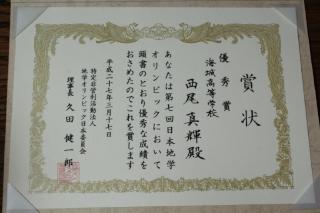 賞状
優秀賞
海城高等学校
西尾真輝殿
あなたは第七回日本地学
オリンピックにおいて
頭書のとおり優秀な成績を
おさめたのでこれを賞します
平成二十七年三月十七日
特定非営利活動法人
地学オリンピック日本委員会
理事長 久田健一郎